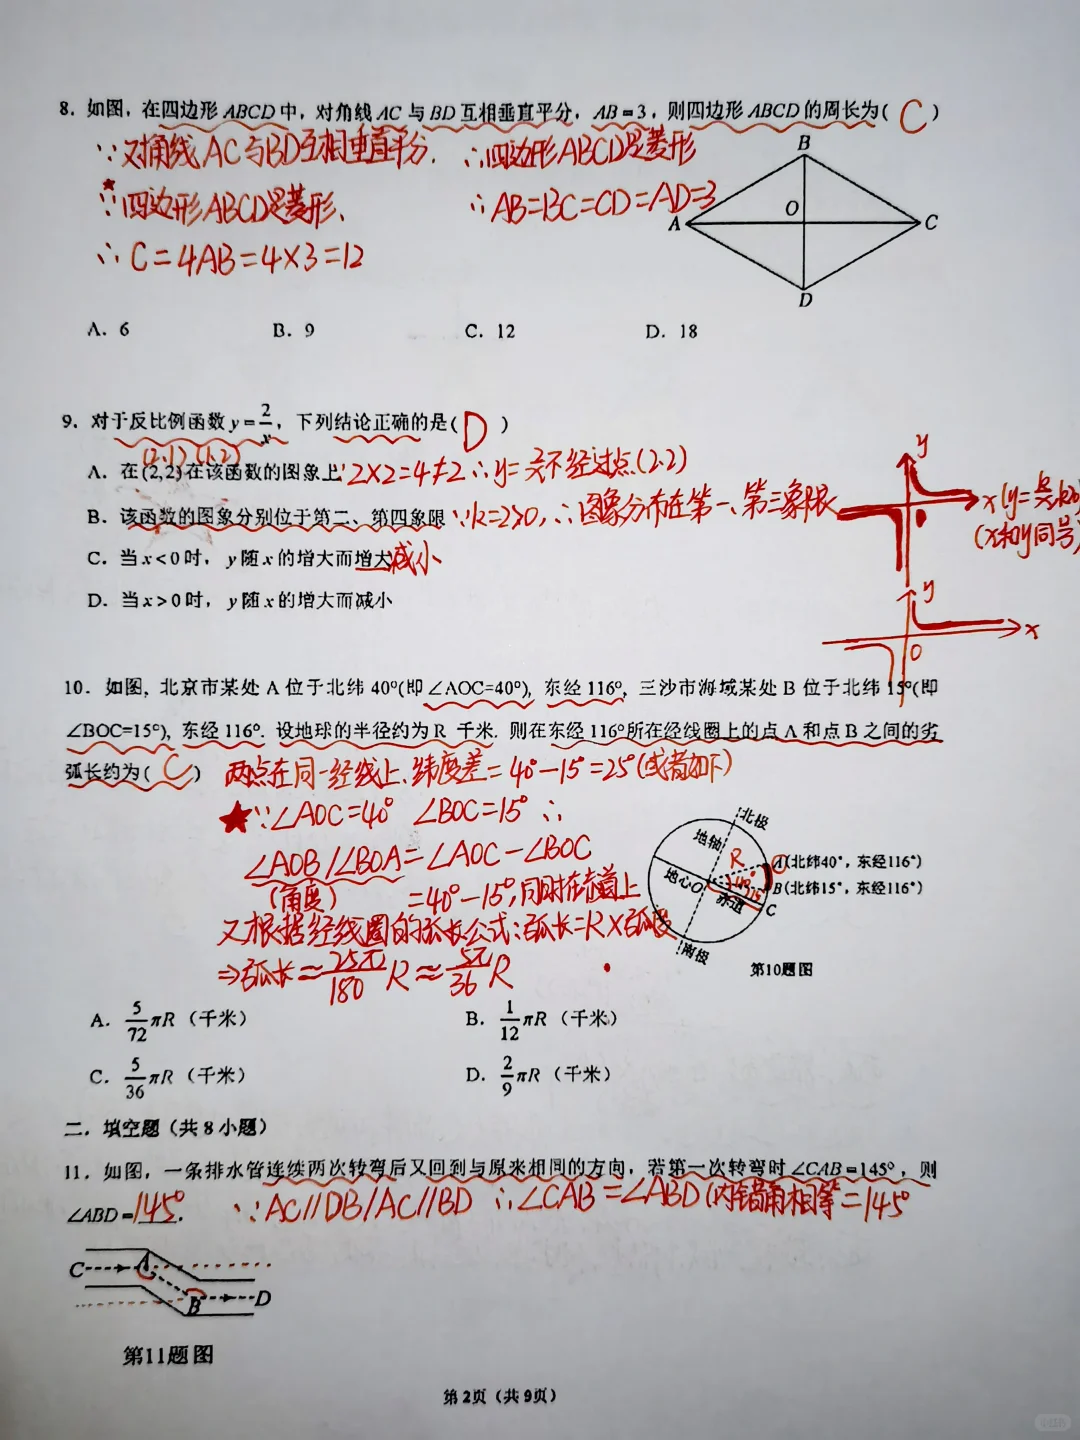 8. 如图，在四边形ABCD中，对角线AC与BD互相垂直平分，AB=3，则四边形ABCD的周长为( C )
∵对角线AC与BD互相垂直平分. ∴四边形ABCD是菱形
★∵四边形ABCD是菱形、 ∴AB=BC=CD=AD=3
∴C=4AB=4×3=12
B
O
A
C
D
A. 6 B. 9 C. 12 D. 18
9. 对于反比例函数y=2/x，下列结论正确的是( D )
(2,1) (1,2)
A. 在(2,2)在该函数的图象上∵2×2=4≠2∴y=2/x不经过点(2,2)
B. 该函数的图象分别位于第二、第四象限∵k=2>0,∴图象分布在第一、第三象限
C. 当x<0时，y随x的增大而增大减小
D. 当x>0时，y随x的增大而减小
y
x (y=k/x,k>0)
(x和y同号)
y
x
O
10. 如图, 北京市某处A位于北纬40°(即∠AOC=40°), 东经116°, 三沙市海域某处B位于北纬15°(即
∠BOC=15°), 东经116°. 设地球的半径约为R 千米. 则在东经116°所在经线圈上的点A和点B之间的劣
弧长约为( C )
两点在同一经线上、纬度差=40°-15°=25°(或者如下)
★∵∠AOC=40° ∠BOC=15° ∴
∠AOB/∠BOA=∠AOC-∠BOC
(角度) =40°-15°,同时在赤道上
又根据经线圈的弧长公式:弧长=R×弧度
⇒弧长≈25π/180 R≈5π/36 R
北极
地轴
R
A(北纬40°，东经116°)
40°
地心O
15
B(北纬15°，东经116°)
赤道
C
南极
第10题图
A. 5/72 πR（千米） B. 1/12 πR（千米）
C. 5/36 πR（千米） D. 2/9 πR（千米）
二．填空题（共8小题）
11. 如图，一条排水管连续两次转弯后又回到与原来相同的方向，若第一次转弯时∠CAB=145°，则
∠ABD=145°. ∵AC//DB/AC//BD ∴∠CAB=∠ABD(内错角相等=145°
C
A
B
D
第11题图
第2页（共9页）